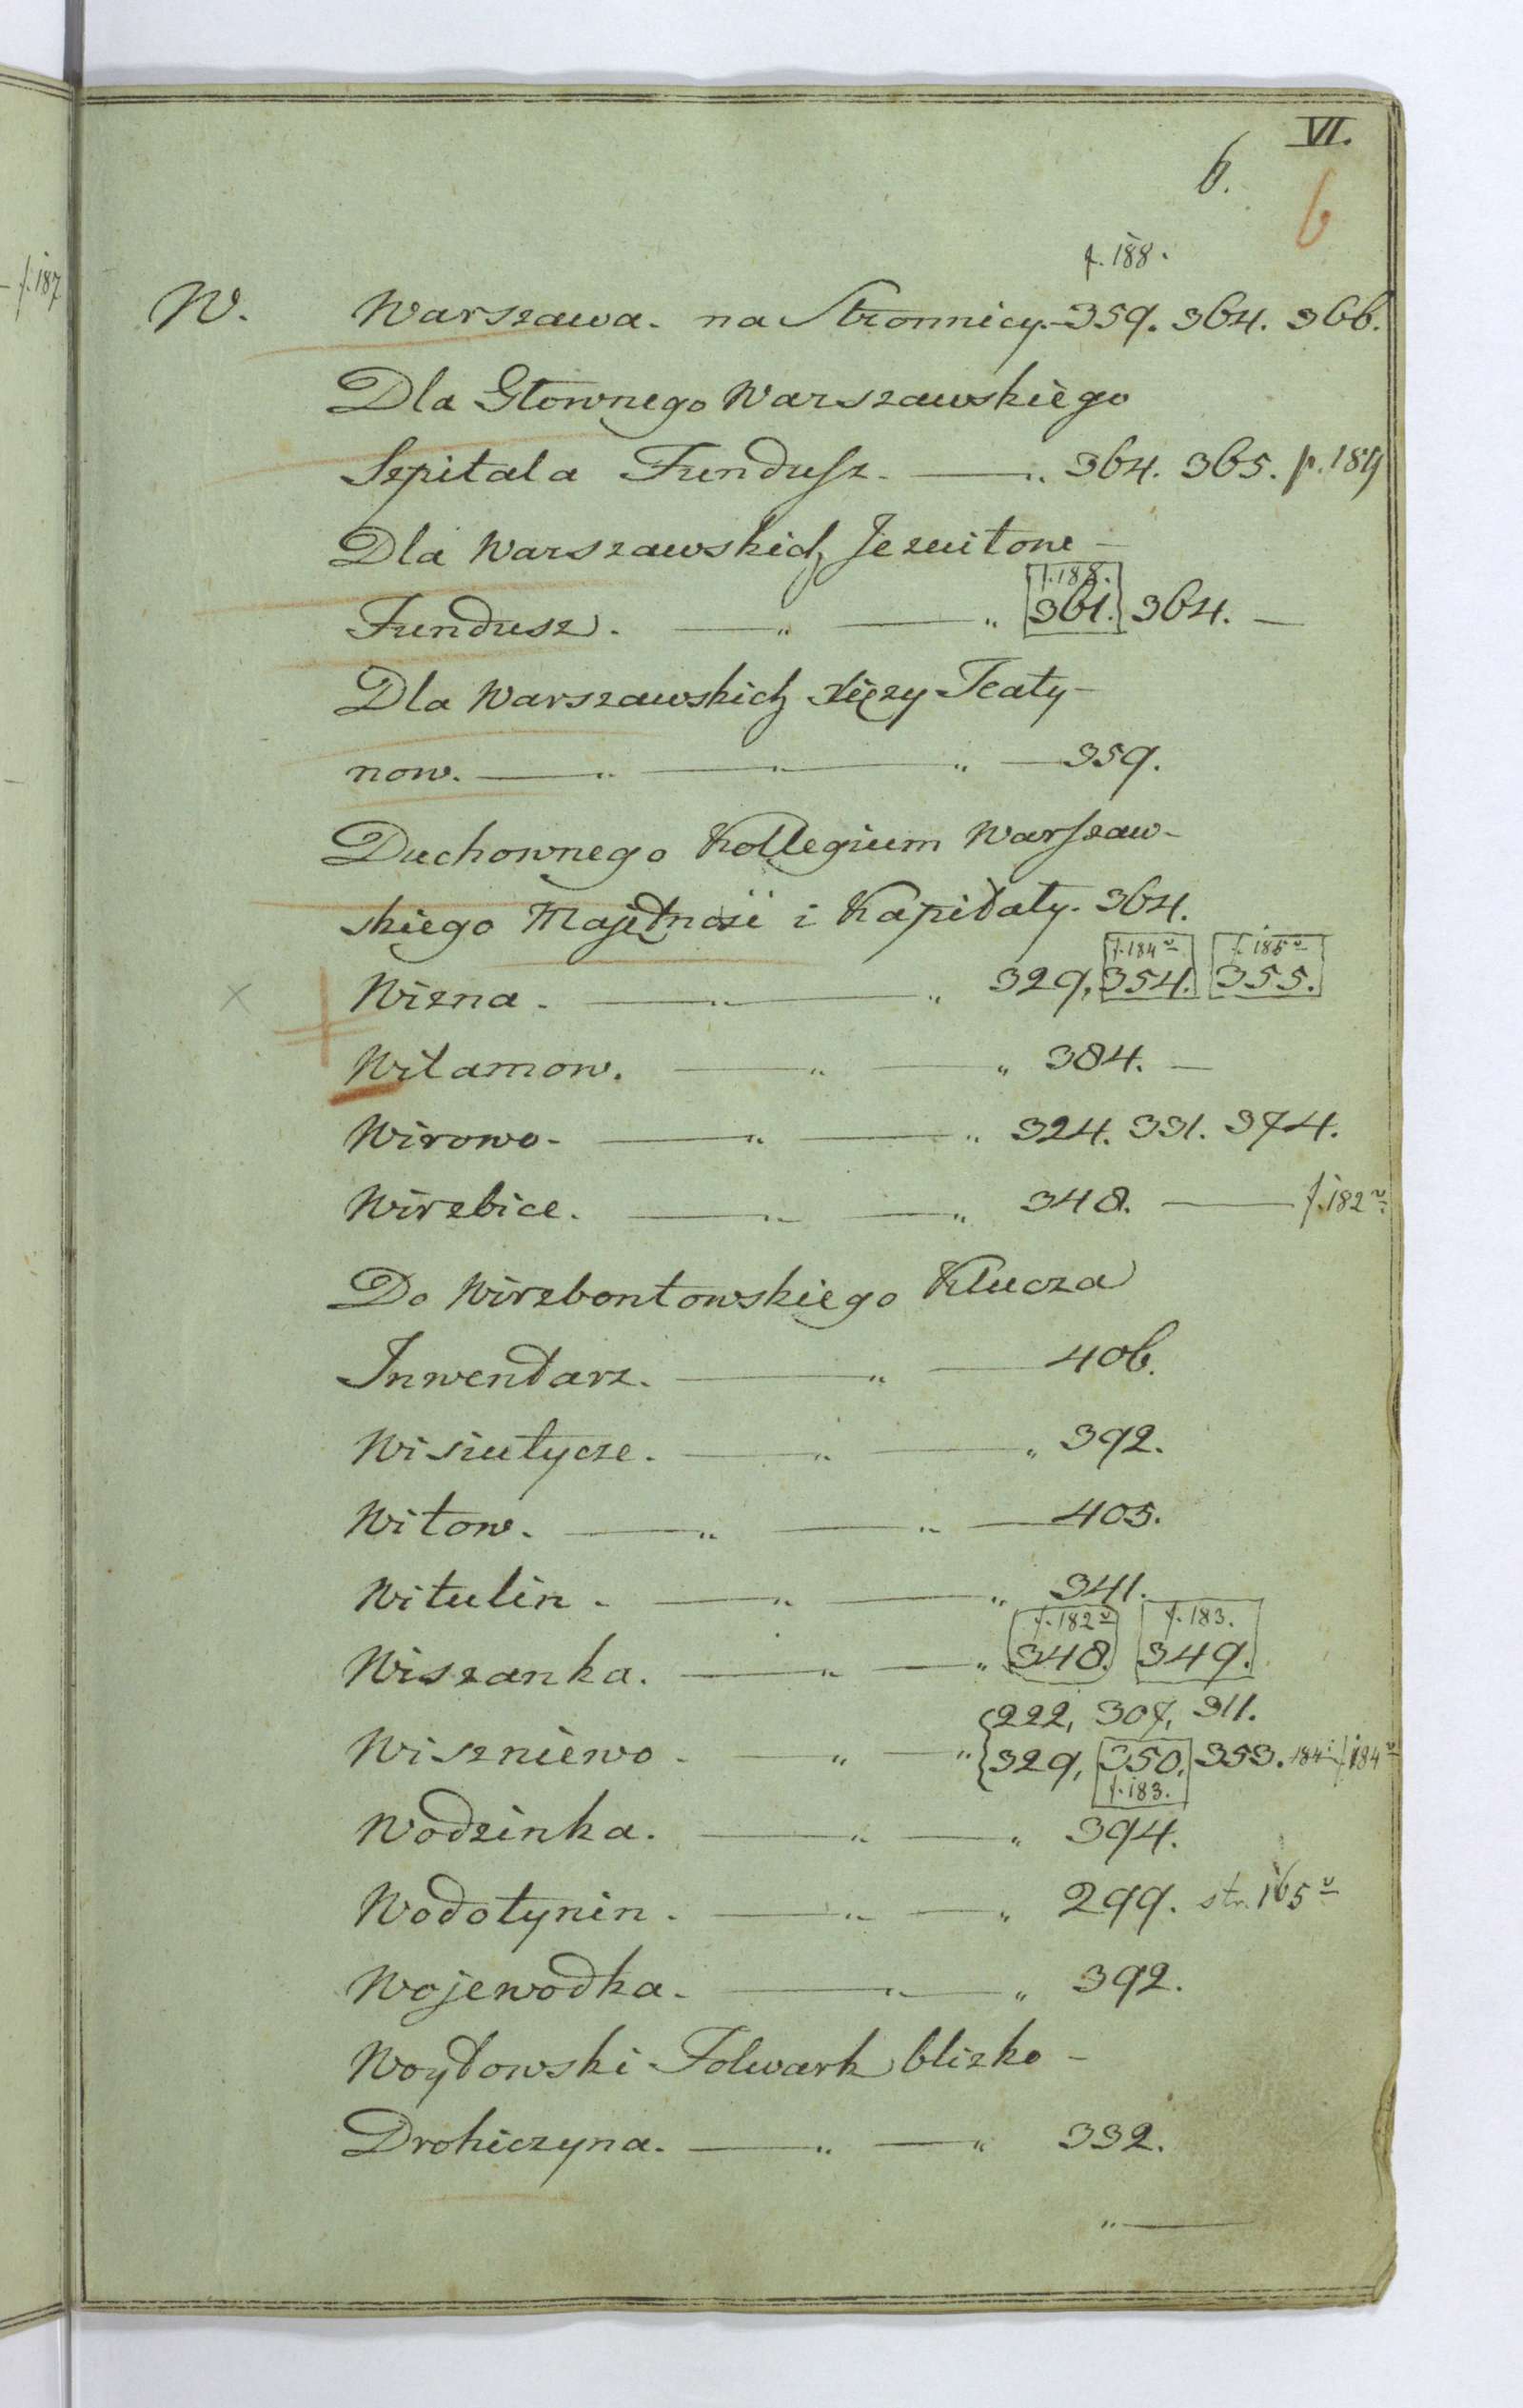 VI.
6.
6
f. 188.
f. 187
W.
Warszawa. na Stronnicy. 359. 364. 366.
Dla Głownego Warszawskiego
Szpitala Fundusz. — „ 364. 365. f. 189
Dla Warszawskich Jezuitow —
f. 188.
Fundusz. — „ — „ 361. 364. —
Dla Warszawskich Xięzy Teaty-
now. — „ — „ — 359.
Duchownego Kollegium Warszaw-
skiego Majętnośi i Kapitały. 364.
f. 184 v f. 185 v
Wizna. — „ — „ 329, 354. 355.
Wilamow. — „ — „ 384. —
Wirowo. — „ — „ 324. 331. 374.
Wirzbice. — „ — „ 348. — f. 182 v.
Do Wirzbontowskiego Klucza
Inwentarz. — „ — 406.
Wisiutycze. — „ — „ 392.
Witow. — „ — „ — 405.
Witulin. — „ — „ 341.
f. 182 v f. 183.
Wiszanka. — „ — „ 348. 349.
222, 307, 311.
Wiszniewo. — „ — „ 329, 350, 353. 184 f. 184 v
f. 183.
Wodzinka. — „ — „ 394.
Wodotynin. — „ — „ 299. str. 165 v
Wojewodka. — „ — „ 392.
Woytowski Folwark blizko —
Drohiczyna. — „ — „ 332.
„ —